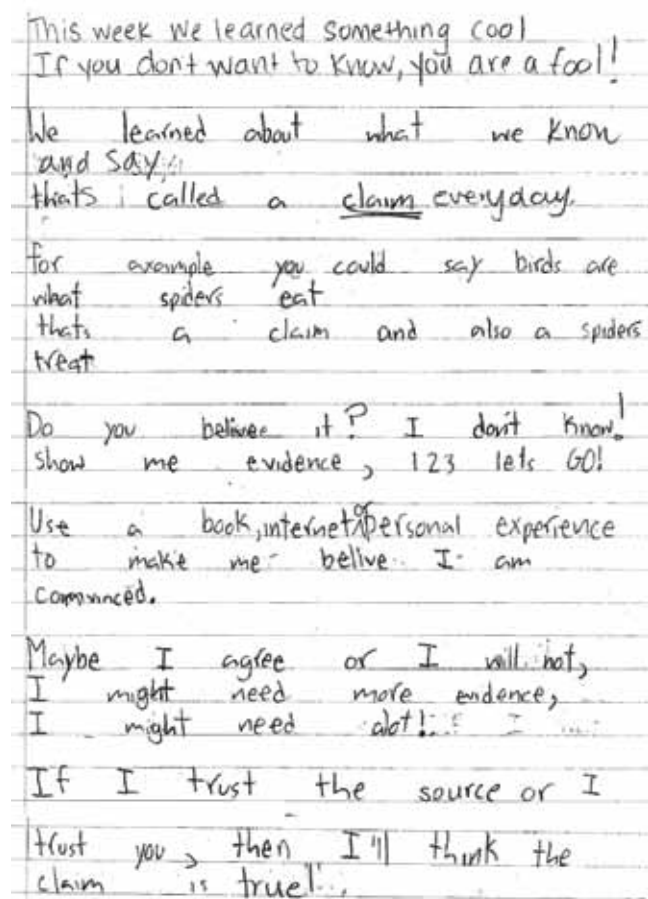 This week we learned something cool
If you dont want to know, you are a fool!
We learned about what we know
and say,
thats called a claim everyday.
for axample you could say birds are
what spiders eat
thats a claim and also a spiders
treat
Do you belivee it? I don't know!
show me evidence, 123 lets GO!
Use a book, internet or personal experience
to make me belive I am
convinced.
Maybe I agree or I will not,
I might need more evidence,
I might need alot!
If I trust the source or I
trust you, then I'll think the
claim is true!